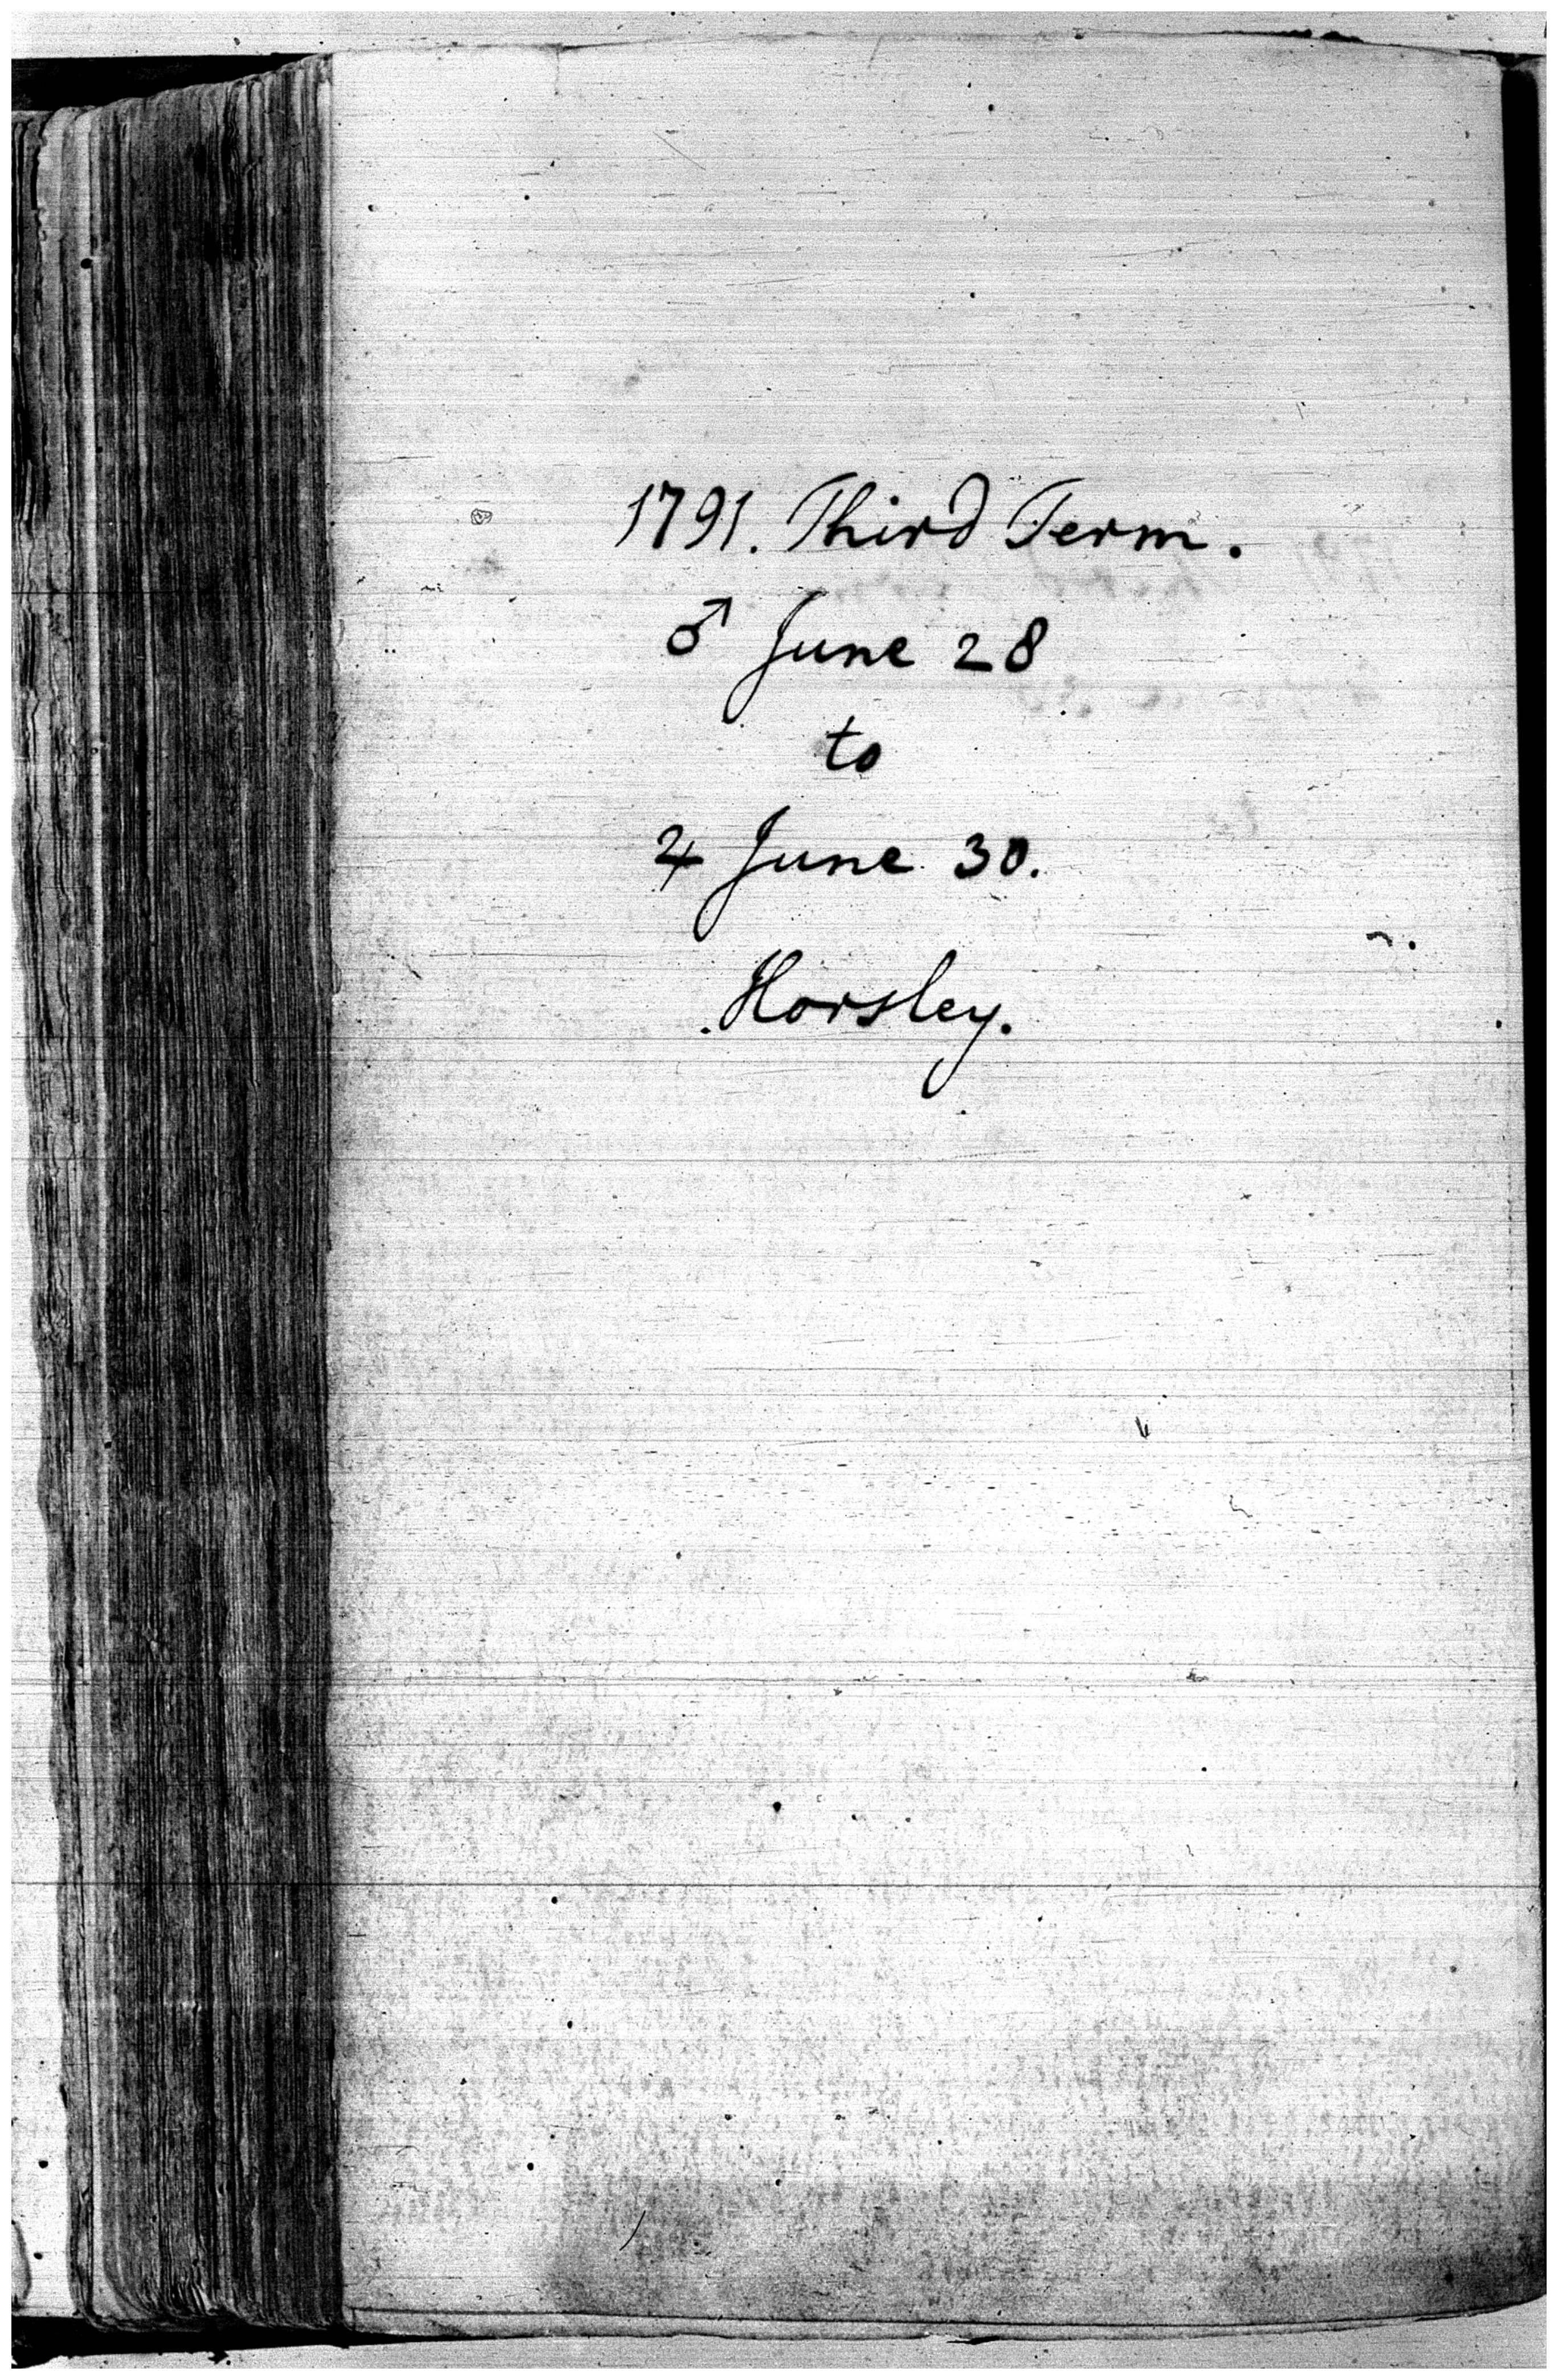 1791. Third Term.
♂ June 28
to
♃ June 30.
Horsley.